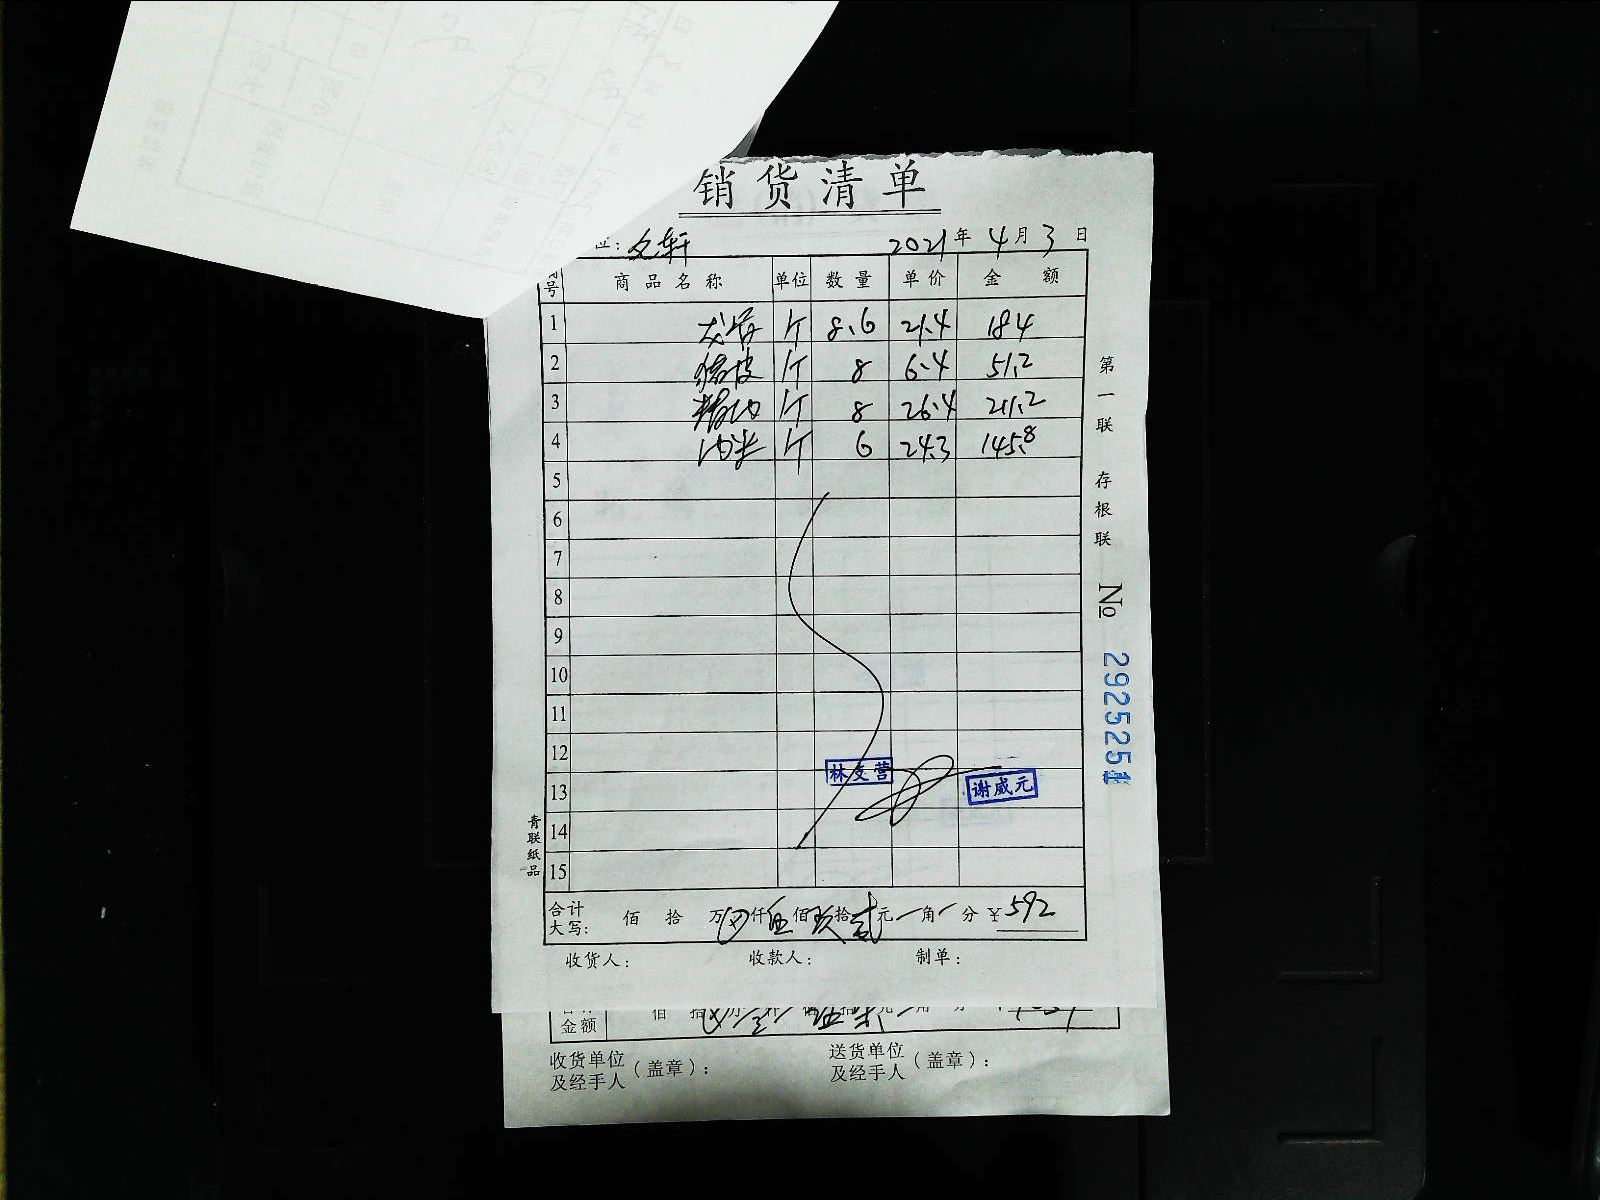 销货清单
位：文轩 2021年4月3日
号 商品名称 单位 数量 单价 金额
1 龙骨 斤 8.6 21.4 184
2 猪皮 斤 8 6.4 51.2
3 精肉 斤 8 26.4 211.2
4 肉半 斤 6 24.3 145.8
5
6
7
8
9
10
11
12
13
14
15
林文营
谢威元
合计大写： 佰 拾 万 仟伍佰玖拾贰元 角 分 ¥592
收货人： 收款人： 制单：
第一联 存根联 № 2925251
青联纸品
金额 佰 拾
收货单位及经手人（盖章）： 送货单位及经手人（盖章）：